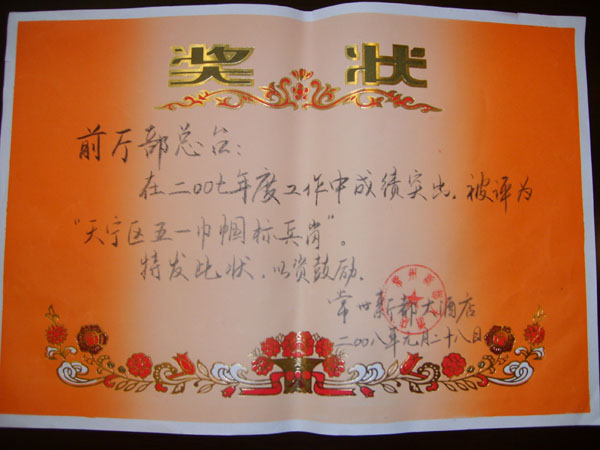 奖状
前厅部总台:
在二00七年度工作中成绩突出,被评为
“天宁区五一巾帼标兵岗”。
特发此状,以资鼓励.
常州新都大酒店
二00八年元月二十八日